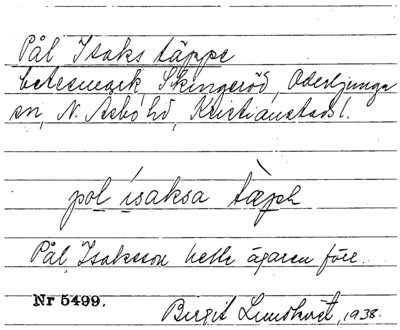 Pål Isaks täppe
betesmark, Skingeröd, Oderljunga
sn, N. Åsbo hd, Kristianstads l.
pol ísaksa tæ̀ph
Pål Isaksson hette ägaren förr.
Nr 5499.
Birgit Lundkvist, 1938.